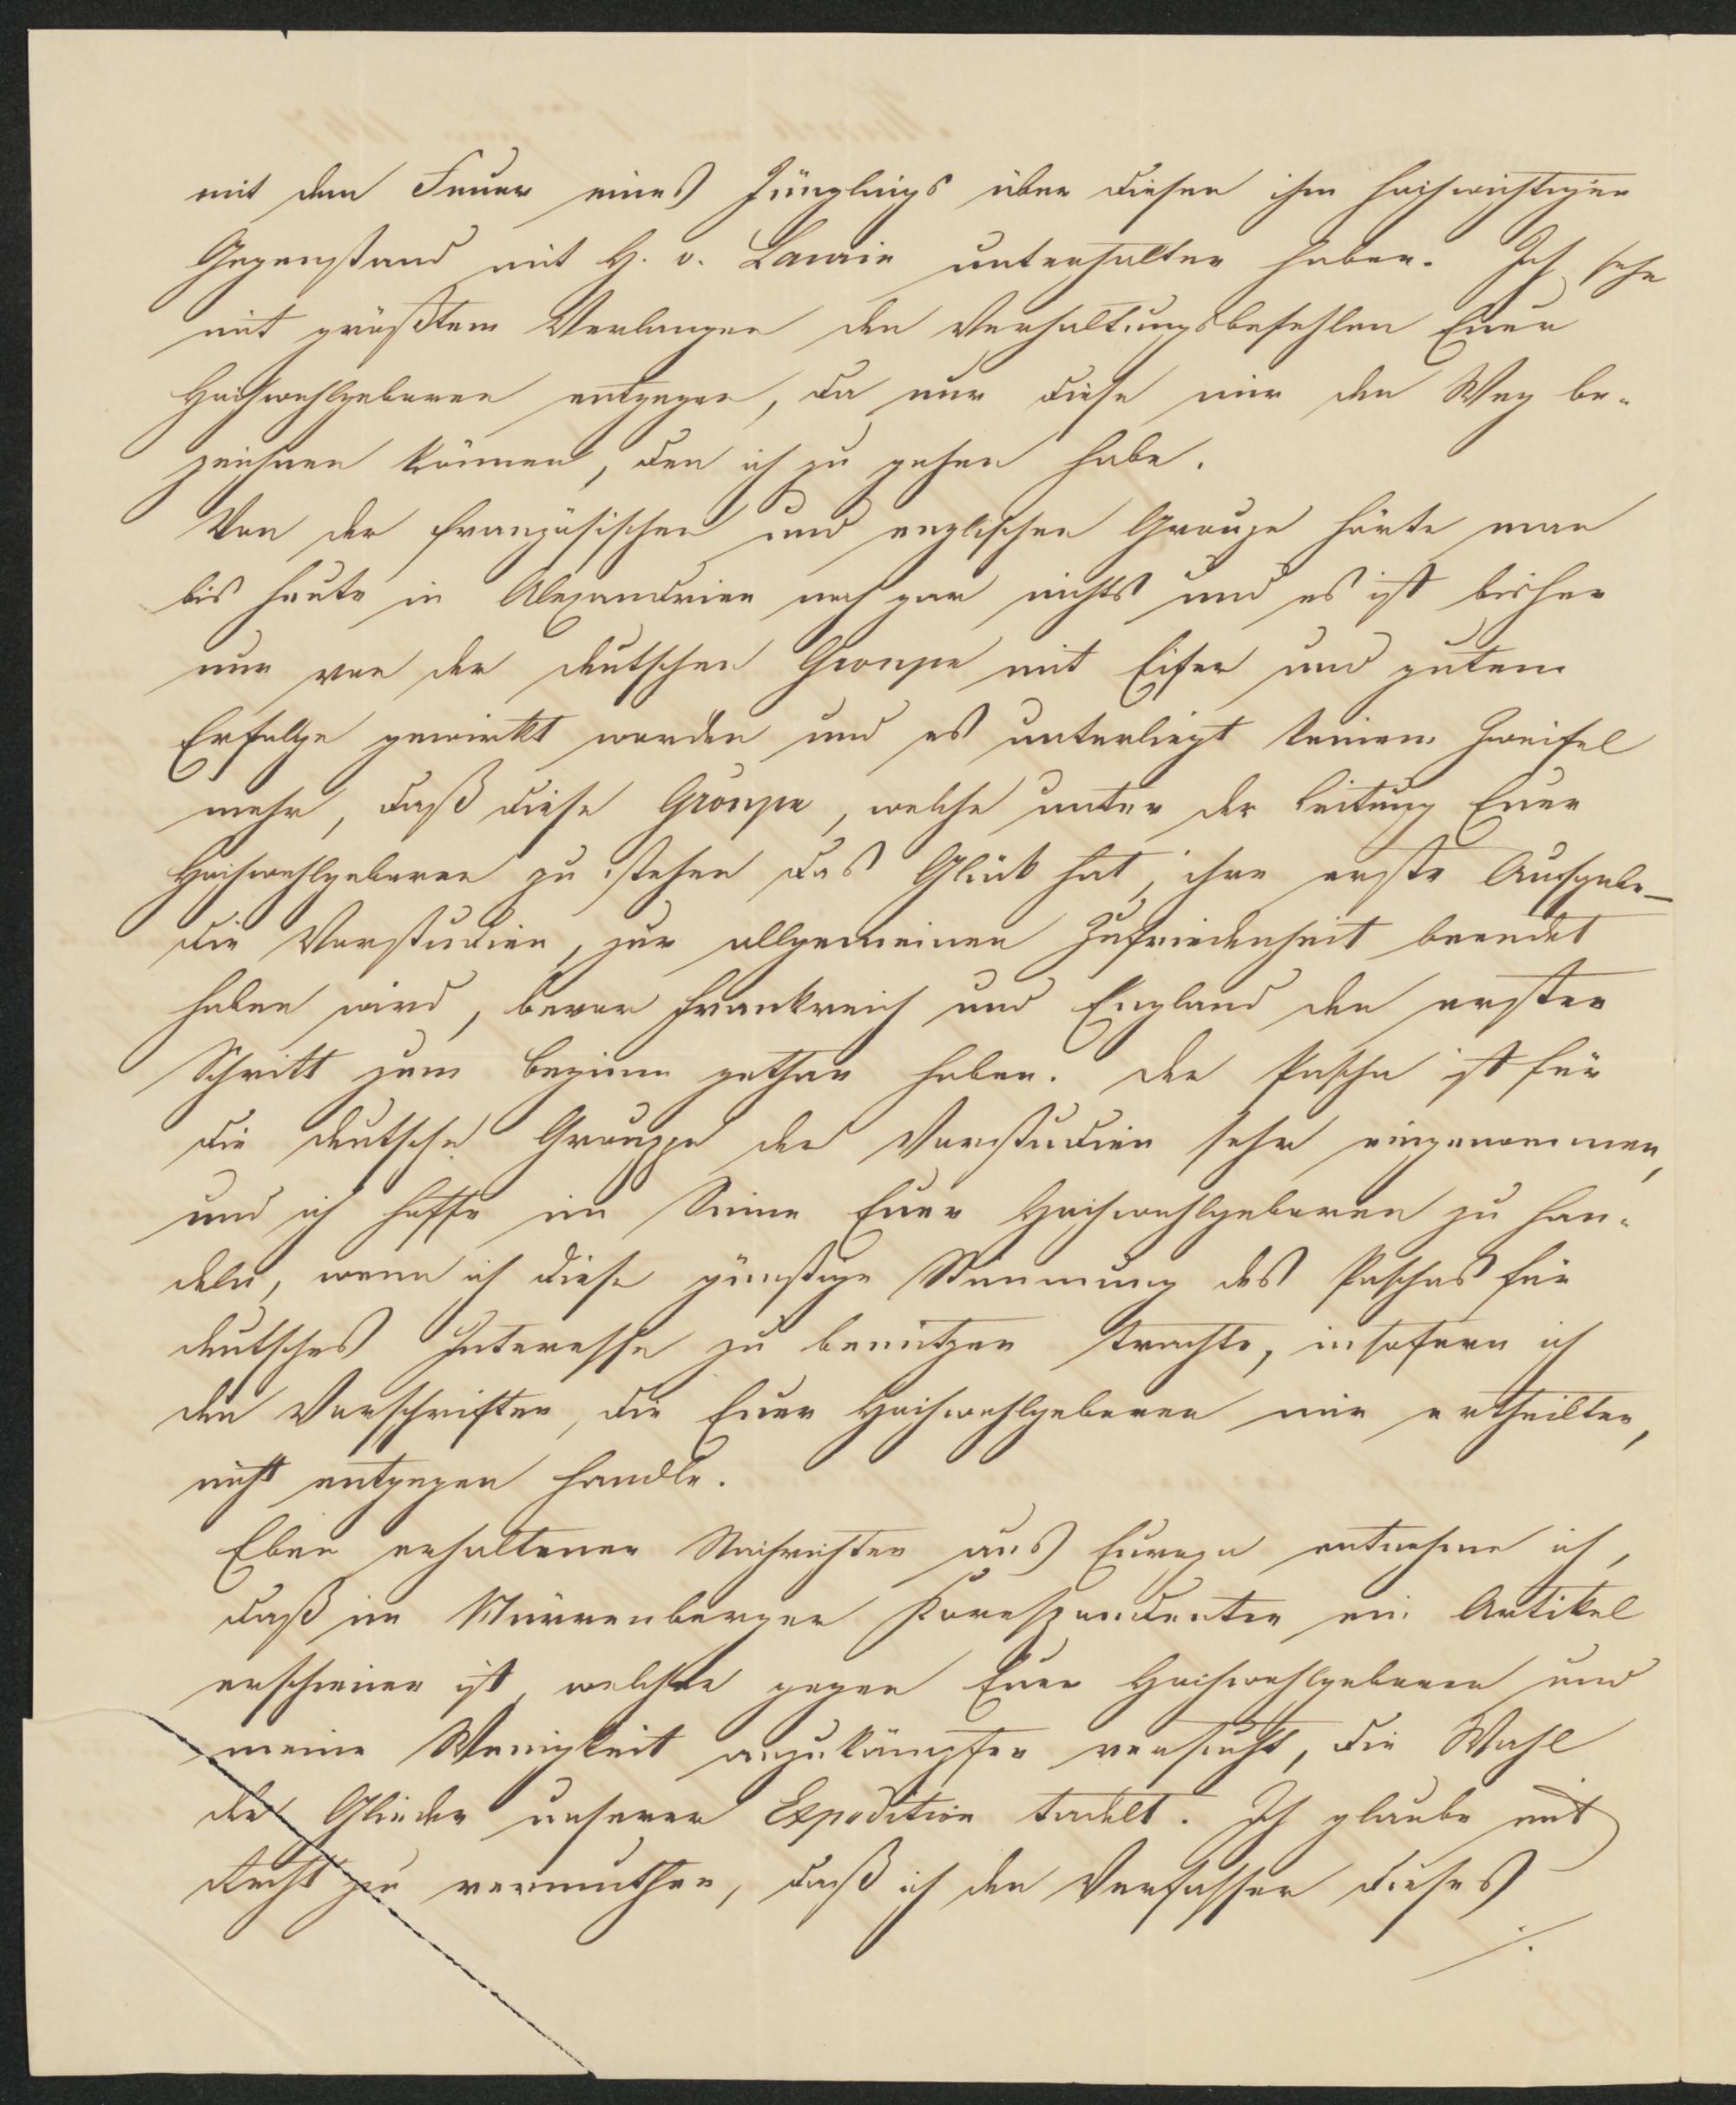 mit dem Feuer eines Jünglings über diesen ihm hochwichtigen
Gegenstand mit H. v. Laurin unterhalten haben. Ich sehe
mit größtem Verlangen den Verhaltungsbefehlen Euer
Hochwohlgeboren entgegen, da nur diese mir den Weg be-
zeichnen können, den ich zu gehen habe.
Von der französischen und englischen Groupe hörte man
bis heute in Alexandrien noch gar nichts und es ist bisher
nur von der deutschen Groupe mit Eifer und gutem
Erfolge gewirkt worden und es unterliegt keinem Zweifel
mehr, daß diese Groupe, welche unter der Leitung Euer
Hochwohlgeboren zu stehen das Glück hat, ihre erste Aufgabe –
die Vorstudien, zur allgemeinen Zufriedenheit beendet
haben wird, bevor Frankreich und England den ersten
Schritt zum Beginn gethan haben. Der Pascha ist für
die deutsche Grouppe der Vorstudien sehr eingenommen,
und ich hoffe im Sinne Euer Hochwohlgeboren zu han-
deln, wenn ich diese günstige Stimmung des Paschas für
deutsches Interesse zu benützen trachte, insofern ich
den Vorschriften, die Euer Hochwohlgeboren mir ertheilten,
nicht entgegen handle.
Eben erhaltenen Nachrichten aus Europa entnehme ich,
daß im Nürrenberger Korespondenten ein Artikel
erschienen ist, welcher gegen Euer Hochwohlgeboren und
meine Wenigkeit anzukämpfen versucht, die Wahl
der Glieder unserer Expedition tadelt. Ich glaube mit
Recht zu vermuthen, daß ich den Verfasser dieses
./.